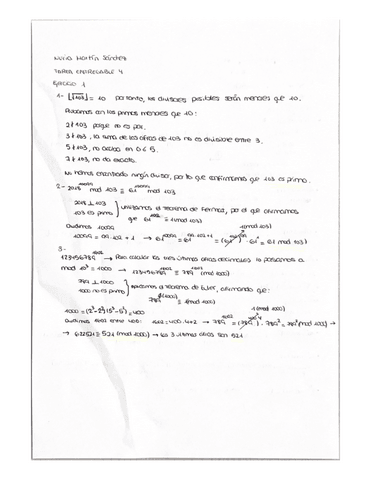 Nuria Martín Sánchez
TAREA ENTREGABLE 4
Ejercicio 1
1- ⌊√103⌋ = 10 por tanto, los divisores posibles serán menores que 10.
Probamos en los primos menores que 10:
2∤103 porque no es par.
3∤103, la suma de las cifras de 103 no es divisible entre 3.
5∤103, no acaba en 0 ó 5.
7∤103, no da exacto.
No hemos encontrado ningún divisor, por lo que confirmamos que 103 es primo.
2- mod 103 ≡ 61 mod 103
2018 ⊥ 103
103 es primo } utilizamos el teorema de Fermat, por el que afirmamos
que 61^102 ≡ 1 (mod 103)
≡ 1 (mod 103)
= 99·102 + 1 → 61 = 61^(99·102+1) = · 61^1 = 61 (mod 103)
3-
123456789 → Para calcular las tres últimas cifras decimales lo pasamos a
mod 10^3 = 1000 → 123456789 ≡ 789 (mod 1000)
789 ⊥ 1000
1000 no es primo } aplicamos el teorema de Euler, afirmando que:
789 ≡ 1 (mod 1000)
1000 = (2^3-2^2)(5^3-5^2) = 400
entre 400: = 400·4+2 → 789 = (789) · 789^2 = 789^2 (mod 1000) →
→ 622521 ≡ 521 (mod 1000) → las 3 últimas cifras son 521